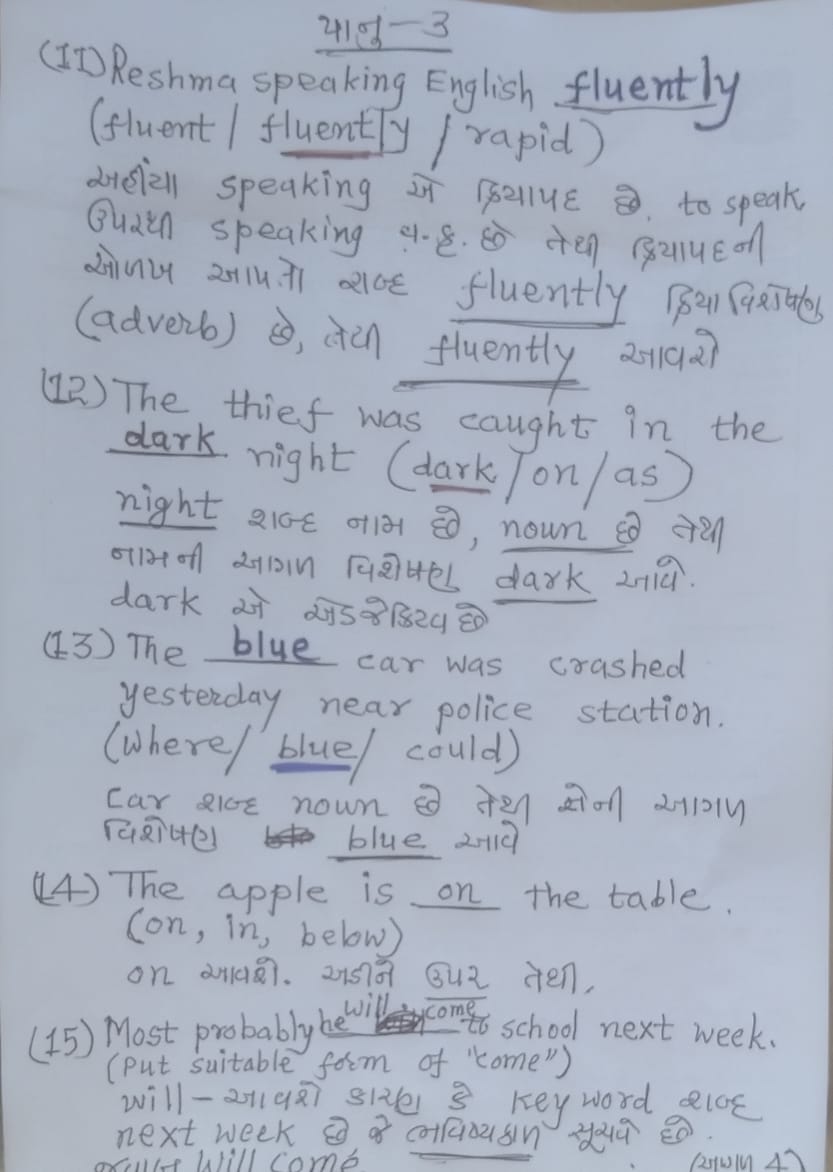 પાનુ - 3
(11) Reshma speaking English fluently
(fluent / fluently / rapid)
અહીંયા speaking એ ક્રિયાપદ છે. to speak
ઉપરથી speaking વ.કૃ. છે તેથી ક્રિયાપદની
ઓળખ આપતો શબ્દ fluently ક્રિયા વિશેષણ
(adverb) છે, તેથી fluently આવશે
(12) The thief was caught in the
dark night (dark / on / as)
night શબ્દ નામ છે, noun છે તેથી
નામની આગળ વિશેષણ dark આવે.
dark એ એડજેક્ટિવ છે
(13) The blue car was crashed
yesterday near police station.
(where / blue / could)
car શબ્દ noun છે તેથી તેની આગળ
વિશેષણ blue આવે
(14) The apple is on the table.
(on, in, below)
on આવશે. અડીને ઉપર તેથી,
(15) Most probably he will come to school next week.
(Put suitable form of "come")
will - આવશે કારણ કે key word શબ્દ
next week છે જે ભવિષ્યકાળ સૂચવે છે.
will come (પાના 4)